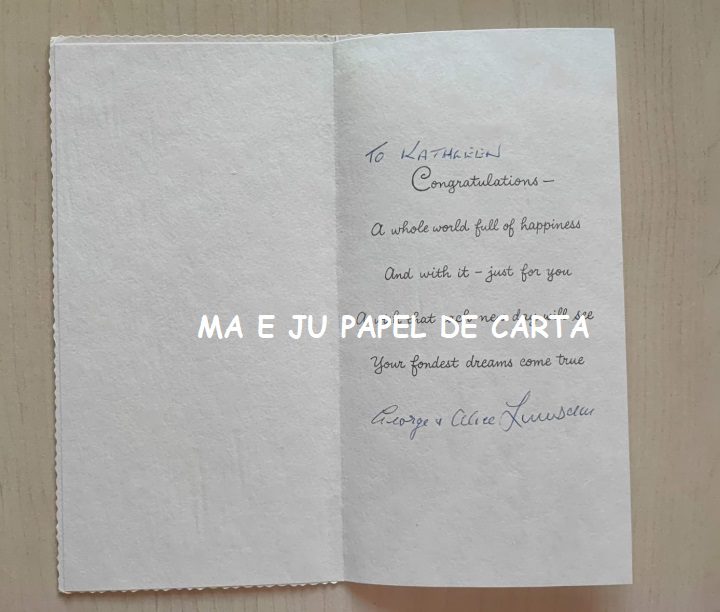 To KATHLEEN
Congratulations —
A whole world full of happiness
And with it – just for you
A wish that each new day will see
MA E JU PAPEL DE CARTA
Your fondest dreams come true
George & Alice